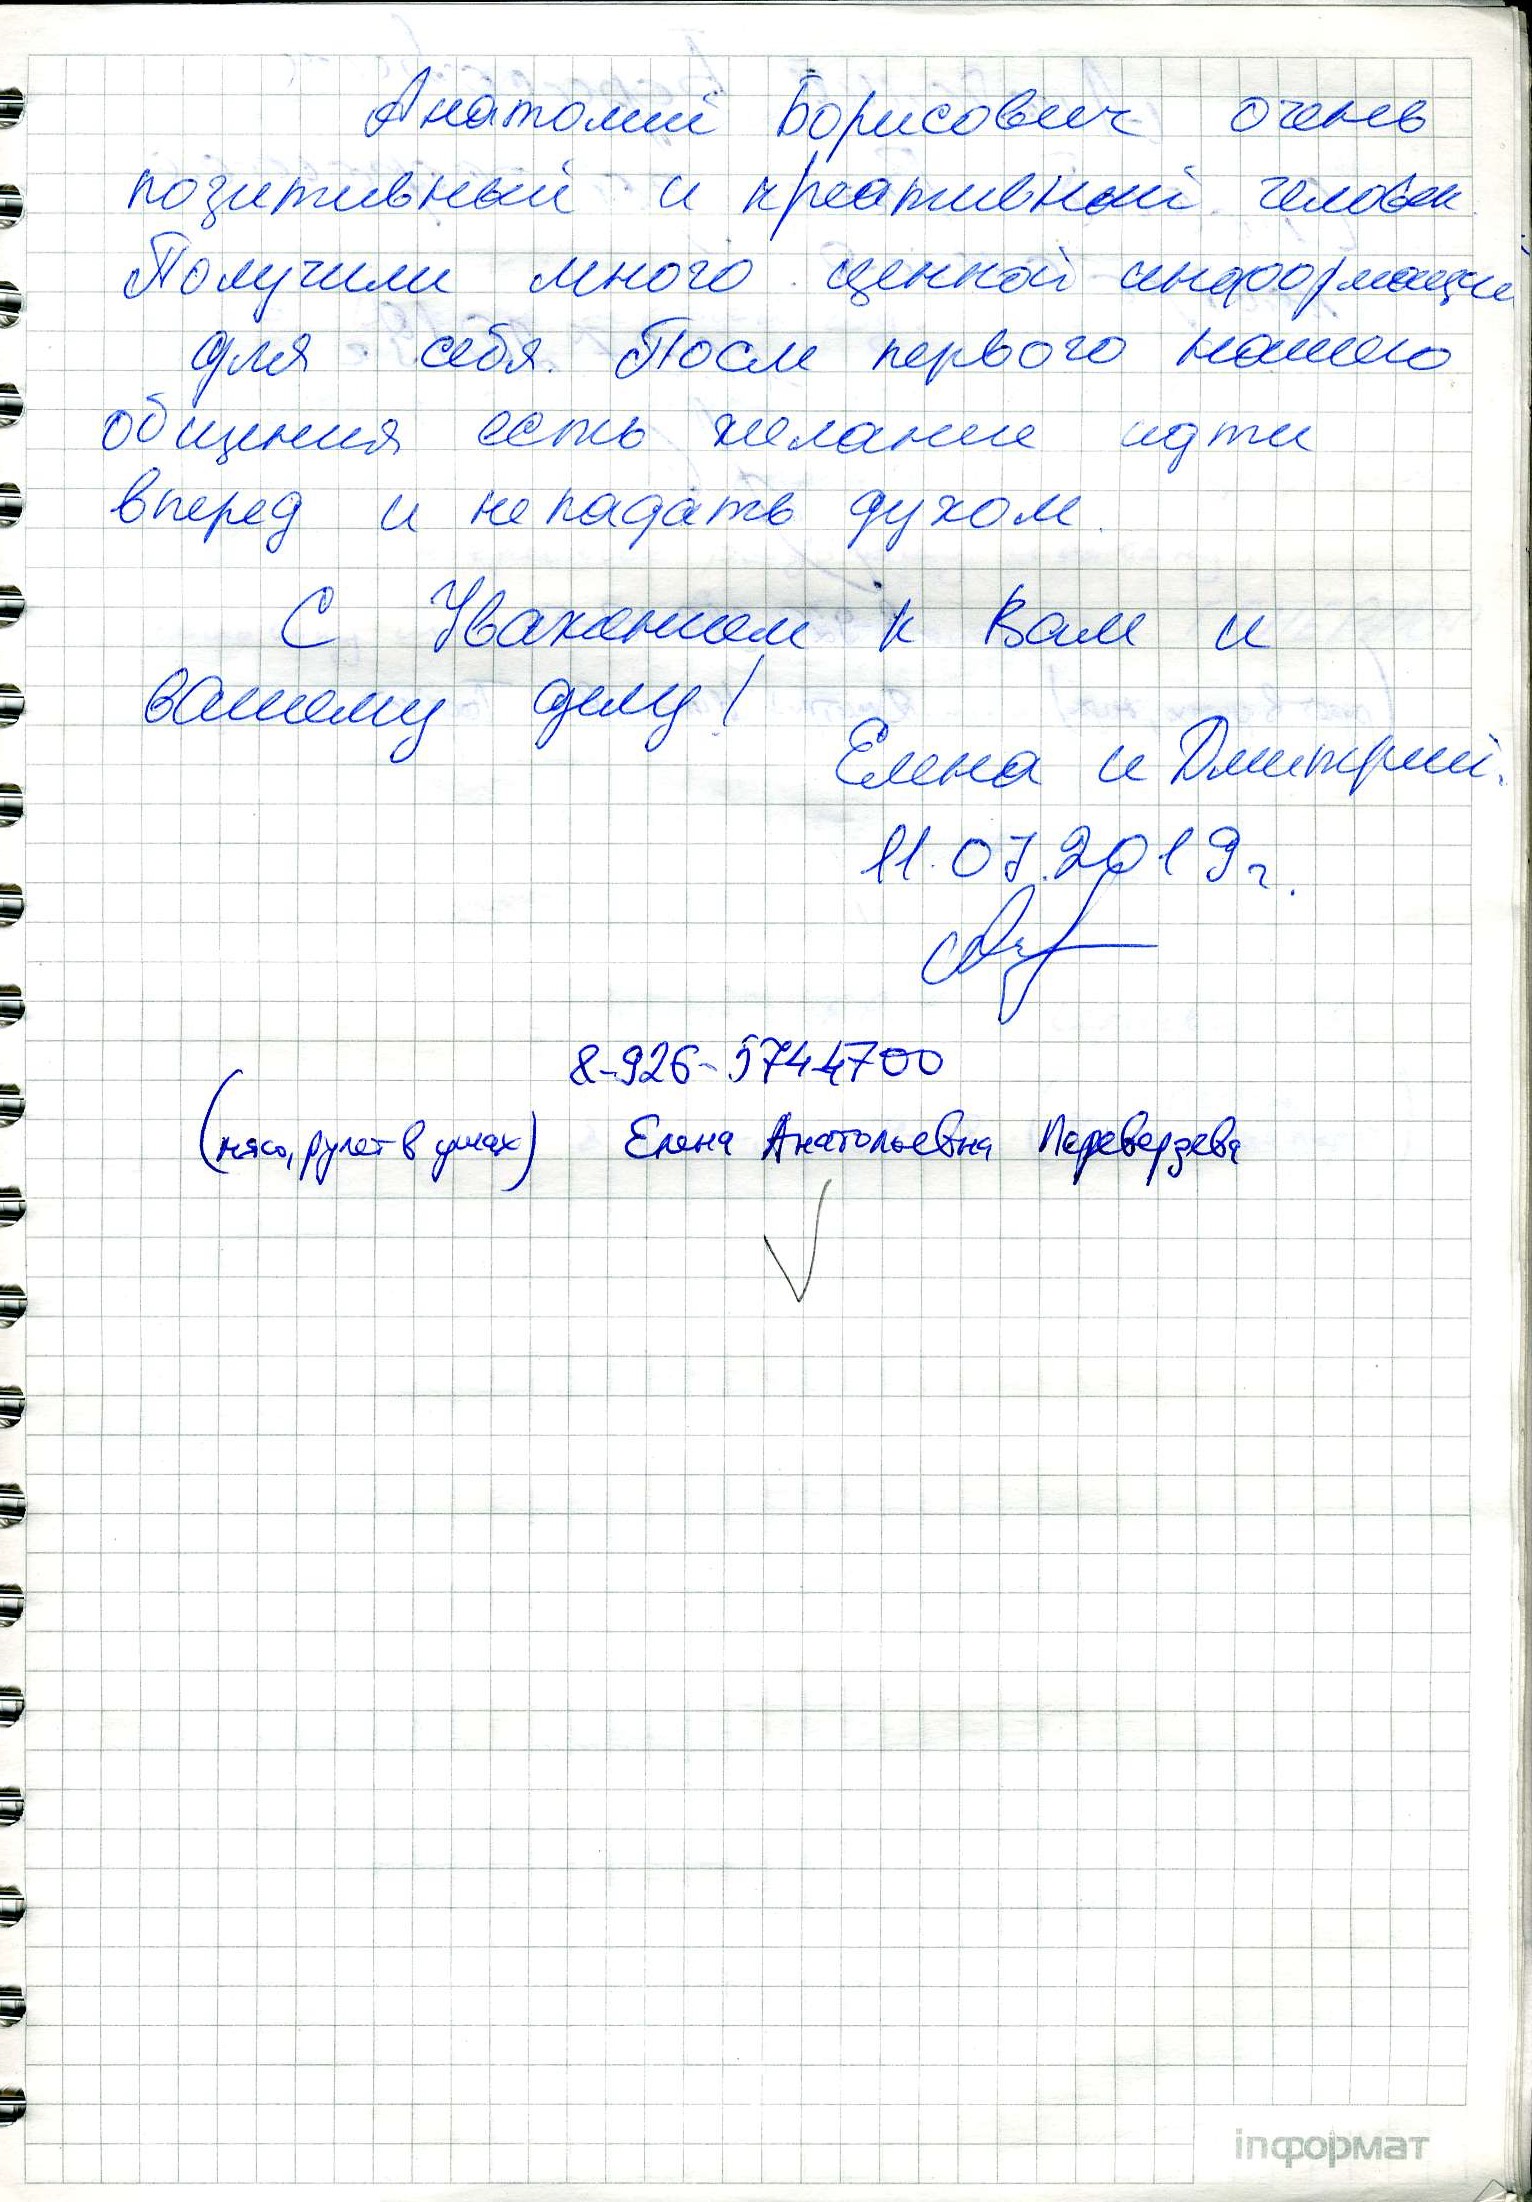 Анатолий Борисович очень
позитивный и креативный человек.
Получили много ценной информации
для себя. После первого нашего
общения есть желание идти
вперед и не падать духом.
С Уважением к Вам и
вашему делу!
Елена и Дмитрий.
11.07.2019г.
8-926-5744700
(мясо, рулет в ушах) Елена Анатольевна Переверзева
inформат